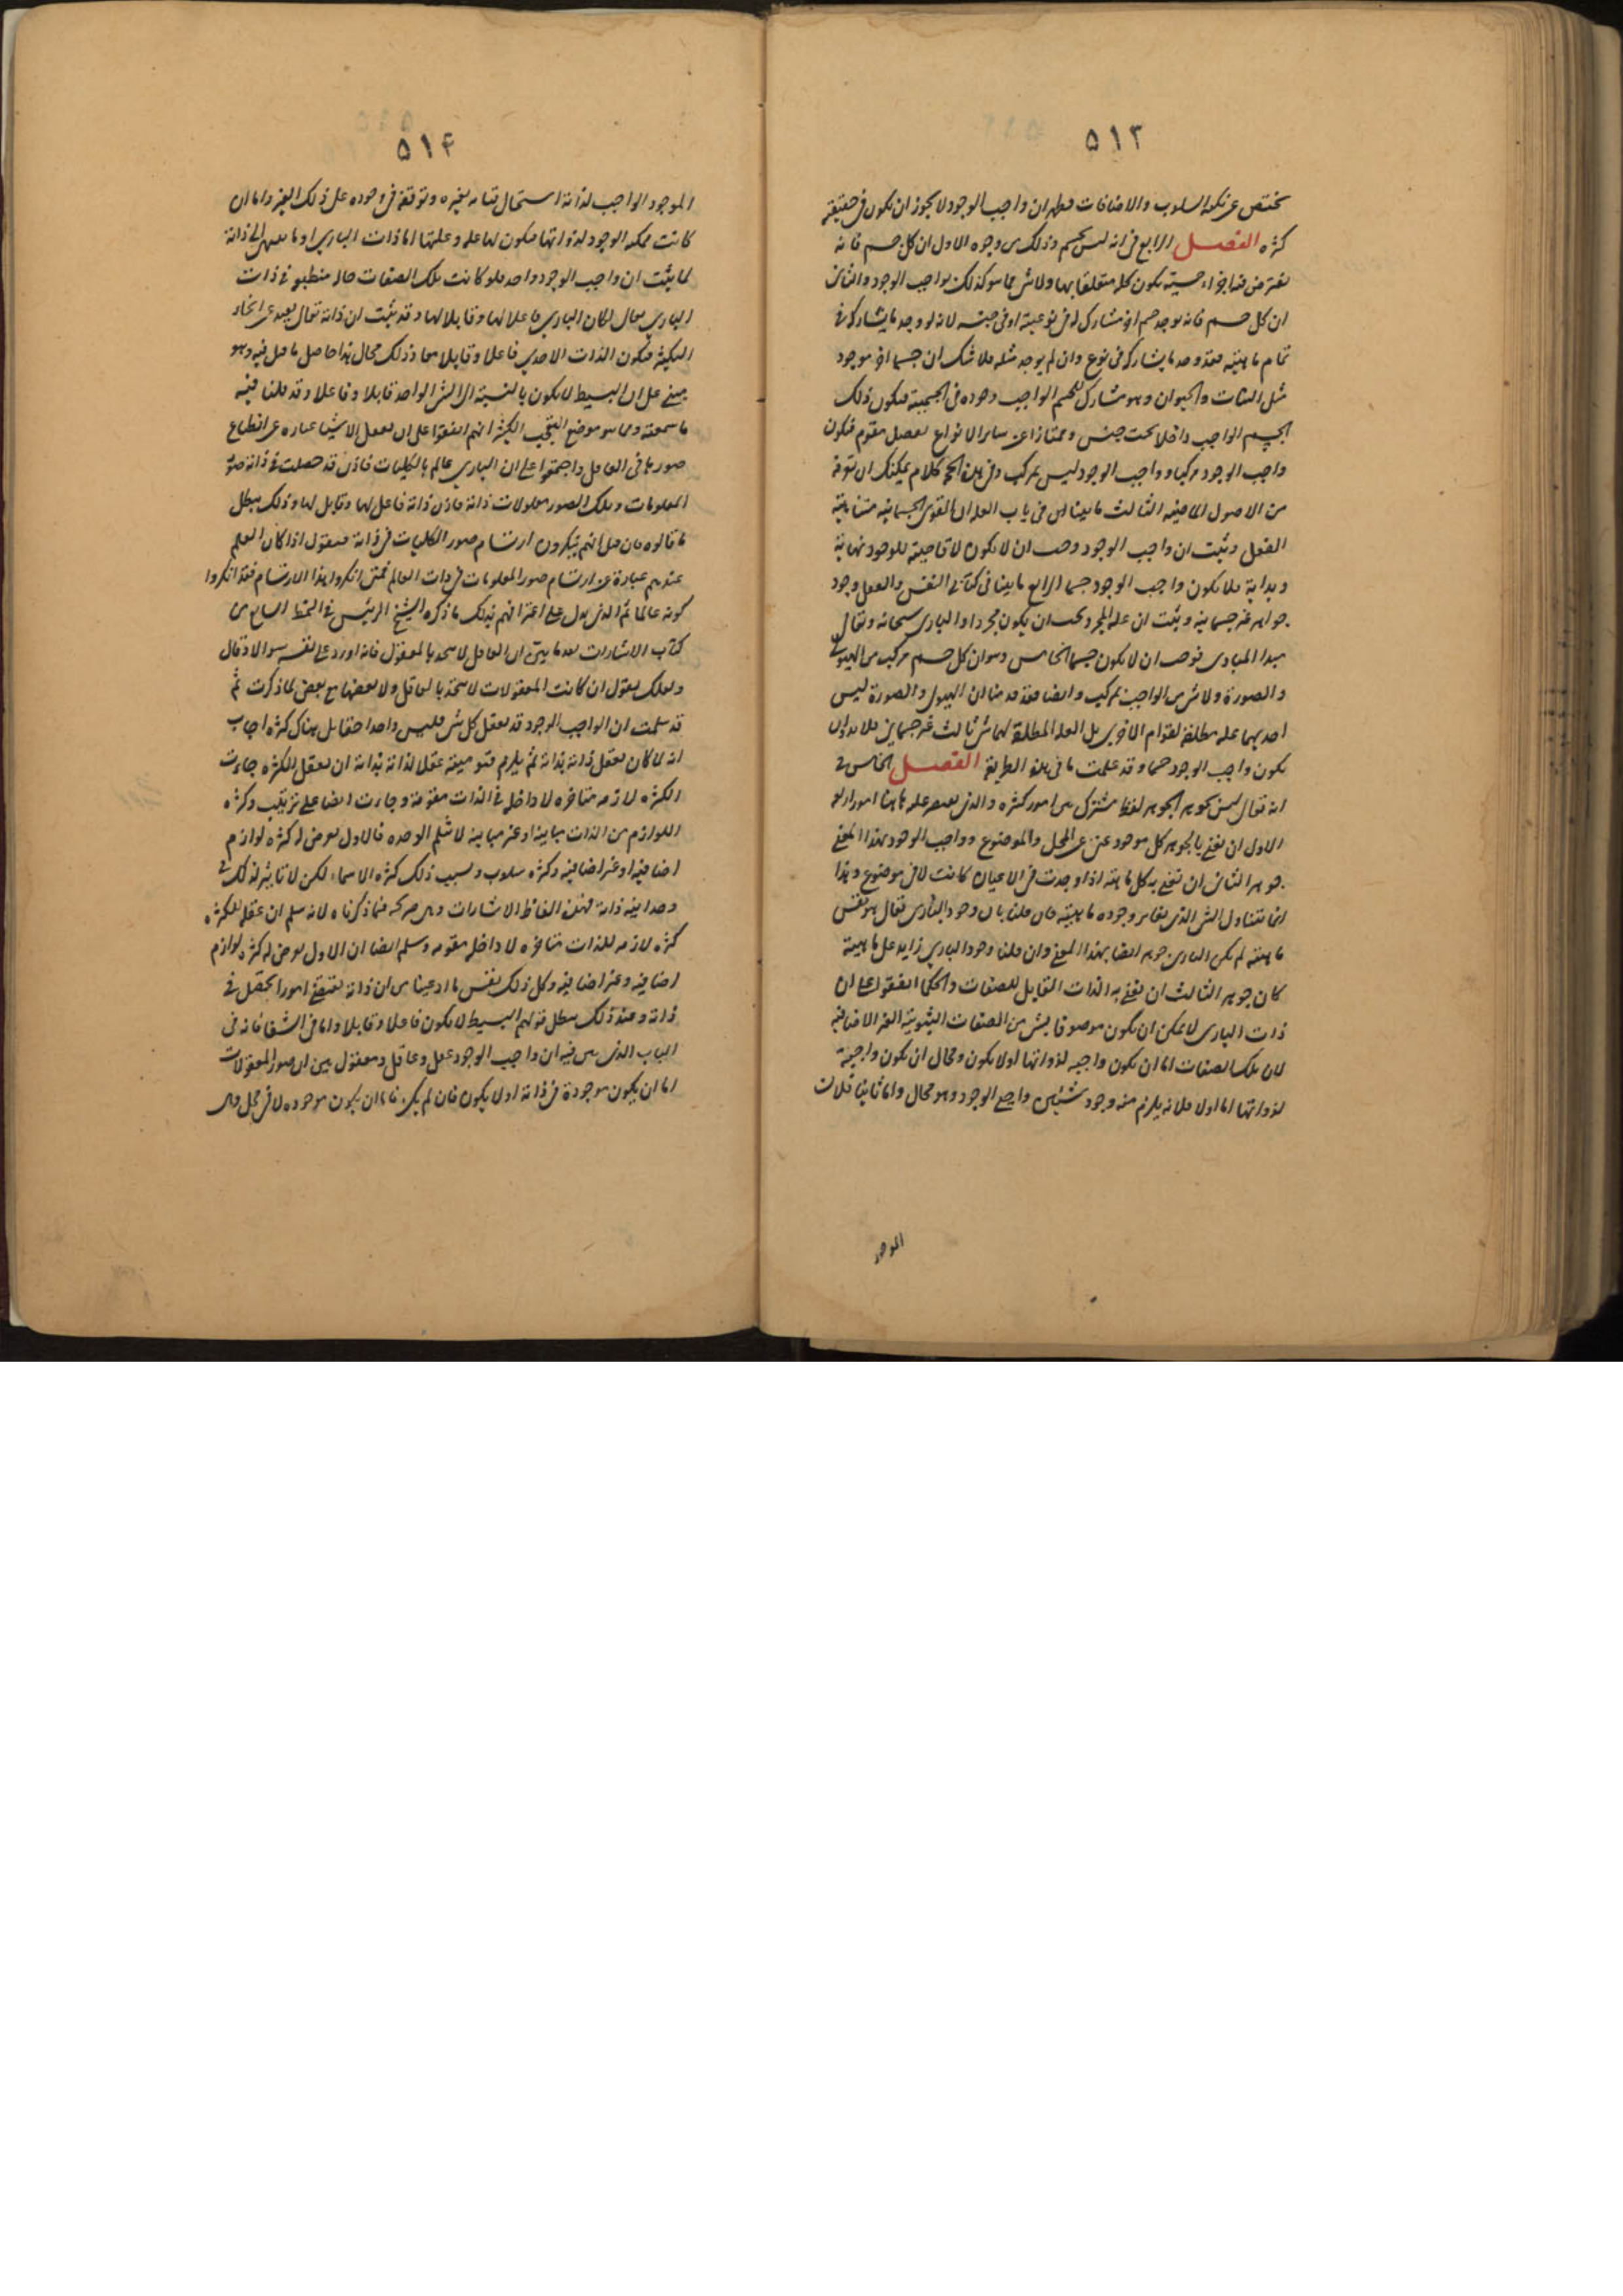 ٥١٣
تختص عن تلك السلوب والاضافات فظهر ان واجب الوجود لا يجوز ان يكون في حقيقته
كثرة الفصل الرابع في انه ليس بجسم وذلك من وجوه الاول ان كل جسم فانه
يفترض فيه اجزاء حسية يكون كله متعلقا بها ولا شئ مما هو كذلك بواجب الوجود والثاني
ان كل جسم فانه يوجد جسم اخر مشارك له في نوعيته او في جنسه لانه لو وجد ما يشاركه في
تمام ماهيته فقد وجد ما يشاركه في نوع وان لم يوجد مثله فلا شك ان جسما اخر موجود
مثل النبات والحيوان وهو مشارك للجسم الواجب وجوده في الجسمية فيكون ذلك
الجسم الواجب داخلا تحت جنس وممتازا عن ساير الانواع بفصل مقوم فيكون
واجب الوجود مركبا وواجب الوجود ليس بمركب وفي هذه الحجة كلام يمكنك ان تعرفه
من الاصول الماضيه الثالث ما بينا في باب العله ان القوى الجسمانيه متناهية
الفعل وثبت ان واجب الوجود وجب ان لا يكون لا قاصيته للوجود نهاية
وبداية فلا يكون واجب الوجود جسما الرابع ما بينا في كتابي النفس والعقل وجود
جواهر غير جسمانيه وثبت ان علة المجرد يجب ان يكون مجردا والباري سبحانه وتعالى
مبدا المبادى فوجب ان لا يكون جسما الخامس وهو ان كل جسم مركب من الهيولى
والصورة ولا شئ من الواجب بمركب وايضا فقد بينا ان الهيولى والصورة ليس
احديهما علة مطلقة لقوام الاخرى بل العلة المطلقة لهما شئ ثالث غير جسماني فلا يجوز ان
يكون واجب الوجود جسما وقد علمت ما في هذه الطريقة الفصل الخامس في
انه تعالى ليس بجوهر الجوهر لفظ مشترك بين امور كثيره والذي يعتبر عليه هاهنا امور اربعه
الاول ان نعني بالجوهر كل موجود غني عن المحل والموضوع وواجب الوجود بهذا المعنى
جوهر الثاني ان نعني به كل ماهية اذا وجدت في الاعيان كانت لا في موضوع وهذا
انما يتناول الشئ الذي يغاير وجوده ماهيته فان قلنا بان وجود الباري تعالى هو نفس
ماهيته لم يكن الباري جوهرا ايضا بهذا المعنى وان قلنا وجود الباري زايد على ماهيته
كان جوهر الثالث ان نعني به الذات القابل للصفات والحكما اتفقوا على ان
ذات الباري لا يمكن ان يكون موصوفا بشئ من الصفات الثبوتية الغير الاضافيه
لان تلك الصفات اما ان يكون واجبه لذواتها اولا يكون ومحال ان يكون واجبة
لذواتها اما اولا فلانه يلزم منه وجود شيئين واجبي الوجود وهو محال واما ثانيا فلان
الموجود
٥١٤
الموجود الواجب لذاته استحال قيامه بغيره وتوقفه في وجوده على ذلك الغير واما ان
كانت ممكنه الوجود لذواتها فيكون لها علة وعلتها اما ذات الباري او ما ينتهي الى ذاته
لما ثبت ان واجب الوجود واحد فلو كانت تلك الصفات حاله منطبعه في ذات
الباري تعالى لكان الباري فاعلا لها وقابلا لها وقد ثبت ان ذاته تعالى بعيد عن انحاء
التكثر فيكون الذات الاحدي فاعلا وقابلا معا وذلك محال هذا حاصل ما قيل فيه وهو
مبني على ان البسيط لا يكون بالنسبة الى الشئ الواحد قابلا وفاعلا وقد قلنا فيه
ما سمعته ومما هو موضع التعجب الكثير انهم اتفقوا على ان تعقل الاشيا عباره عن انطباع
صورها في العاقل واجمعوا على ان الباري عالم بالكليات فاذن قد حصلت في ذاته صور
المعلومات وتلك الصور معلولات ذاته فاذن ذاته فاعل لها وقابل لها وذلك يبطل
ما قالوه فان قيل انهم ينكرون ارتسام صور الكليات في ذاته فنقول اذا كان العلم
عندهم عبارة عن ارتسام صور المعلومات في ذات العالم فمتى انكروا هذا الارتسام فقد انكروا
كونه عالما ثم الذي يدل على اعترافهم بذلك ما ذكره الشيخ الرئيس في النمط السابع من
كتاب الاشارات بعد ما بين ان العاقل لا يتحد بالمعقول فانه اورد على نفسه سوالا وقال
ولعلك تقول ان كانت المعقولات لا تتحد بالعاقل ولا بعضها مع بعض لما ذكرت ثم
قد سلمت ان الواجب الوجود قد يعقل كل شئ فليس واحدا حقا بل هناك كثرة اجاب
انه لما كان يعقل ذاته بذاته ثم يلزم قيوميته عقلا لذاته بذاته ان يعقل الكثره جاءت
الكثره لازمه متاخره لا داخله في الذات مقومة وجاءت ايضا على ترتيب وكثره
اللوازم من الذات مباينه او غير مباينه لا تثلم الوحده فالاول يعرض له كثره لوازم
اضافيه او غير اضافيه وكثره سلوب وبسبب ذلك كثرة الاسماء لكن لا تاثير لذلك في
وحدانية ذاته فهذه الفاظ الاشارات وهي صريحة فيما ذكرناه لانه سلم ان عقله للكثره
كثره لازمه للذات متاخره لا داخله مقومه وسلم ايضا ان الاول يعرض له كثره لوازم
اضافيه وغير اضافيه وكل ذلك نفس ما ادعيناه من ان ذاته تقتضي امورا تحصل في
ذاته وعند ذلك يبطل قولهم البسيط لا يكون فاعلا وقابلا واما في الشفا فانه في
الباب الذي بين فيه ان واجب الوجود عقل وعاقل ومعقول بين ان صور المعقولات
اما ان يكون موجودة في ذاته او لا يكون فان لم يكن فاما ان يكون موجوده لا في محل وهي